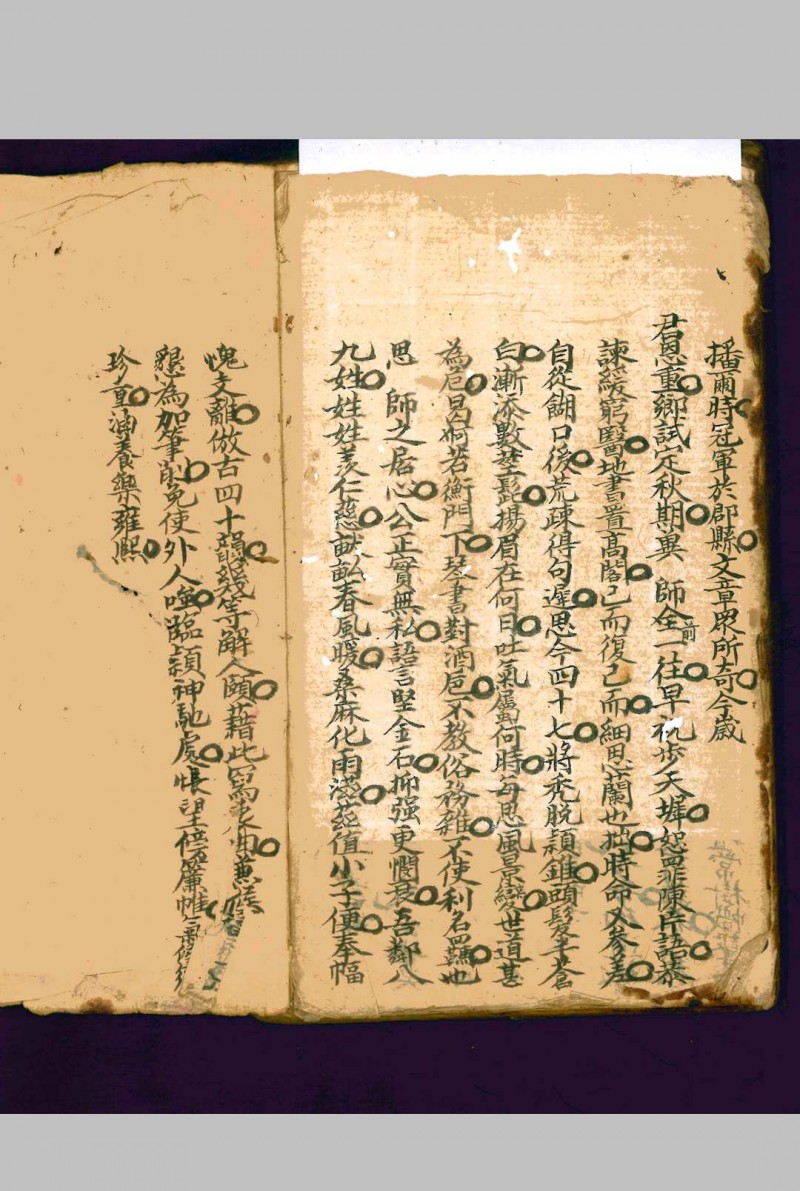 播爾時冠軍於郡縣文章眾所奇今歲
君恩重鄉試定秋期異 師全前一往早祝步天墀恕罪陳片語恭
諫緩窮醫地書置高閣已而復已而細思荊蘭也拙時命又參差
自從餬口後荒疎得句遲思今四十七將禿脫穎錐頭髮半蒼
白漸添數莖髭揚眉在何日吐氣屬何時每思風景變世道甚
為危曷爾若衡門下琴書對酒卮不教俗務雜不使利名羈也
思 師之居心公正實無私語言堅金石抑强更憫衰吾鄰八
九姓姓姓羨仁慈畝畝春風暖桑麻化雨滋茲值小子便奉幅
愧支離倣古四十韻幾等解人頤藉此寫衷曲兼
懇為加筆削免使外人嗤臨穎神馳處悵望倍簾帷
珍重涵養樂雍熙